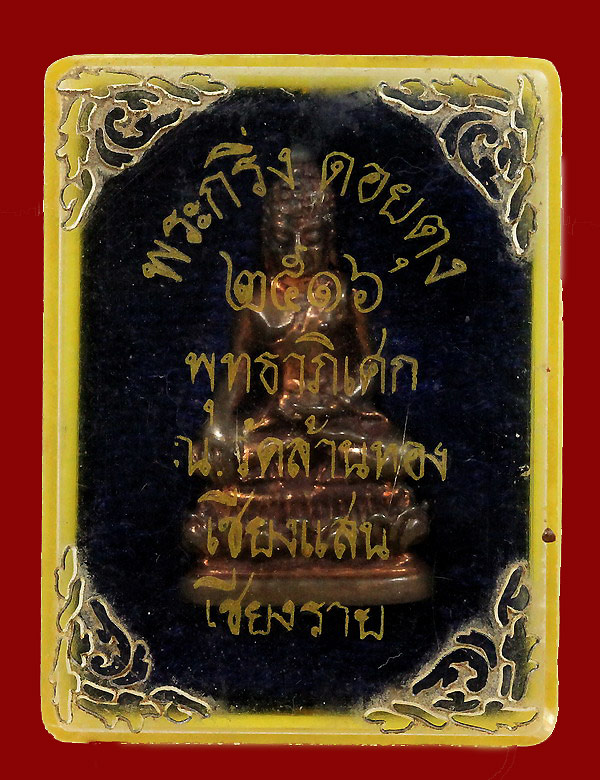 พระกริ่ง ดอยตุง
๒๕๑๖
พุทธาภิเศก
ณ. วัดล้านทอง
เชียงแสน
เชียงราย